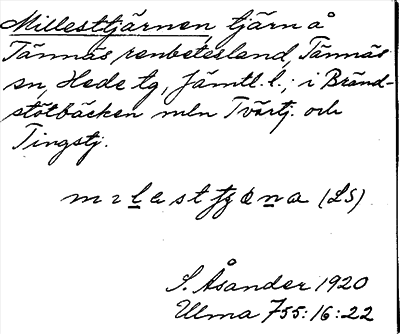 Millesttjärnen tjärn å
Tännäs renbetesland, Tännäs
sn, Hede tg, Jämtl. l.; i Bränd-
stötbäcken mln Tvärtj. och
Tingstj.
(LS)
S. Åsander 1920
Ulma 755:16:22